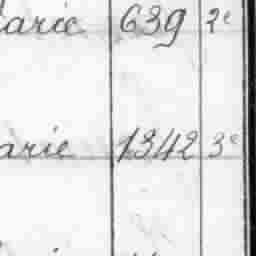 arie 639 2e
arie 1342 3e